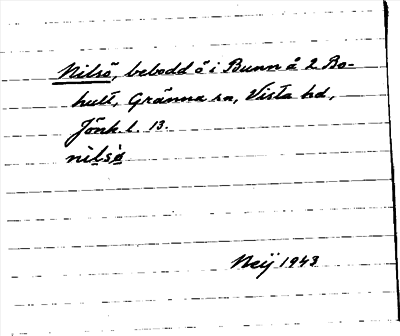 Nilsö, bebodd ö i Bunn å 2 Bo-
hult, Gränna sn, Vista hd,
Jönk. l. 13.
nilsö
Neij 1943